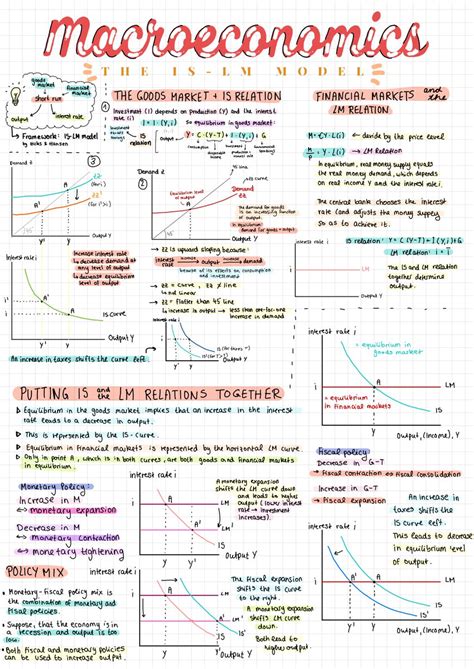 Macroeconomics
THE IS-LM MODEL
goods market
financial market
short run
output
interest rate
↳ Framework: IS-LM model
by Hicks & Hansen
①
THE GOODS MARKET + IS RELATION
Investment (I) depends on production (Y) and the interest
rate (i)
I = I (Y, i)
so equilibrium in goods market:
IS relation
Y = C (Y-T) + I (Y, i) + G
③
Demand Z
ZZ (for i)
ZZ' (for i')
A'
A
Y'
Y
Output Y
Interest rate i
i'
i
A'
A
IS curve
Y'
Y
Output Y
Increase interest rate
↳ decrease demand at
any level of output
↳ decrease equilibrium
level of output
An increase in taxes shifts the IS curve left.
②
Demand Z
Equilibrium level
of output
Demand ZZ
A
45°
Y
Output Y
The demand for goods
is an increasing function
of output
equilibrium
demand for goods = output
→ ZZ is upward sloping because:
output increase → demand increase
because of its effects on consumption
and investment
→ ZZ = curve, ZZ ≠ line
↳ not linear
→ ZZ = flatter than 45 line
↳ increase in output → less than one-for-one
increase in demand
interest rate i
i
IS (for taxes T)
IS' (for T' > T)
Y'
Y
Output Y
FINANCIAL MARKETS and the
LM RELATION
M = €Y · L(i) ← divide by the price level
M/P = Y · L(i) → LM Relation
In equilibrium, real money supply equals
the real money demand, which depends
on real income Y and the interest rate i.
The central bank chooses the interest
rate (and adjusts the money supply
so as to achieve it.
IS relation: Y = C (Y-T) + I (Y, i) + G
LM relation: i = i
interest rate i
i
LM
Output Y
The IS and LM relation
together determine
output.
interest rate i
= equilibrium in
goods market
A
LM
i
= equilibrium
in financial markets
IS
Y
Output, (Income), Y
PUTTING IS and the LM RELATIONS TOGETHER
▷ Equilibrium in the goods market implies that an increase in the interest
rate leads to a decrease in output.
▷ This is represented by the IS-curve.
▷ Equilibrium in financial markets is represented by the horizontal LM curve.
▷ Only in point A, which is in both curves, are both goods and financial markets
in equilibrium.
Monetary Policy:
Increase in M
↔ monetary expansion
Decrease in M
↔ monetary contraction
↔ monetary tightening
interest rate i
A
LM
A'
LM'
IS
Output Y
A monetary expansion
shifts the LM curve down
and leads to higher
output (lower interest
rate → investment
increases).
Fiscal policy
Decrease in G-T
↔ Fiscal contraction ↔ fiscal consolidation
Increase in G-T
↔ Fiscal expansion
interest rate i
A'
A
i
LM
IS
IS'
Y'
Y
Output, (Income), Y
An increase in
taxes shifts the
IS curve left.
This leads to decrease
in equilibrium level
of output.
POLICY MIX
• Monetary-fiscal policy mix is
the combination of monetary and
fiscal policies.
• Suppose, that the economy is in
a recession and output is too
low.
• Both fiscal and monetary policies
can be used to increase output.
interest rate i
A
LM
A'
LM'
IS'
IS
Y
Y'
Output Y
The fiscal expansion
shifts the IS curve
to the right.
A monetary expansion
shifts LM curve
down.
Both lead to
higher output.